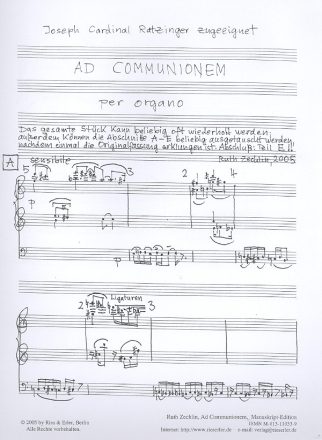 Joseph Cardinal Ratzinger zugeeignet
AD COMMUNIONEM
per organo
Das gesamte Stück kann beliebig oft wiederholt werden;
außerdem können die Abschnitte A-E beliebig ausgetauscht werden,
nachdem einmal die Originalfassung erklungen ist. Abschluß: Teil E !!
Ruth Zechlin, 2005
A sensibile
5 3 2 4
p
p
2 Ligaturen 3
© 2005 by Ries & Erler, Berlin
Alle Rechte vorbehalten.
Ruth Zechlin, Ad Communionem, Manuskript-Edition
ISMN M-013-11055-9
Internet: http://www.rieserler.de e-mail: verlag@rieserler.de